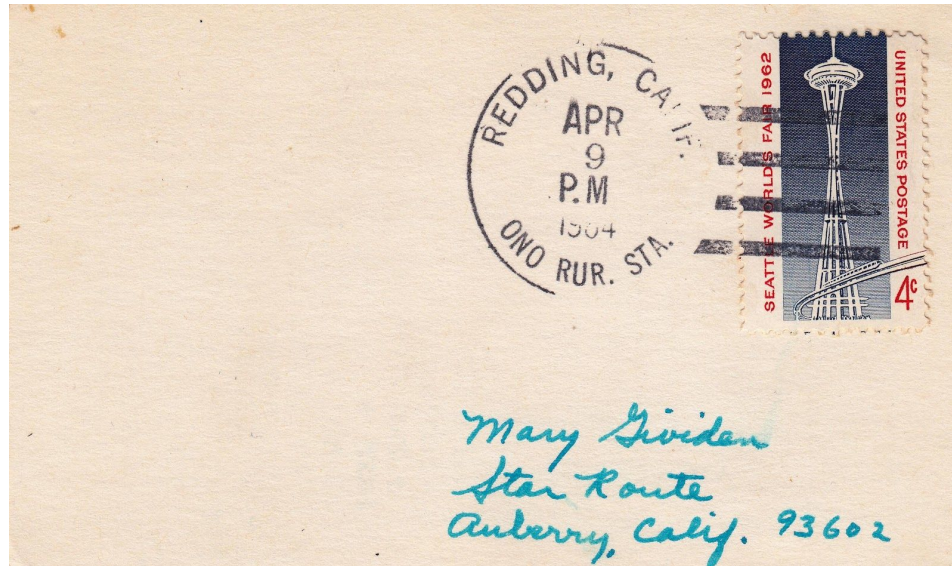 REDDING, CALIF.
APR
9
P.M
1964
ONO RUR. STA.
SEATTLE WORLD'S FAIR 1962
UNITED STATES POSTAGE
4c
Mary Gividen
Star Route
Auberry, Calif. 93602